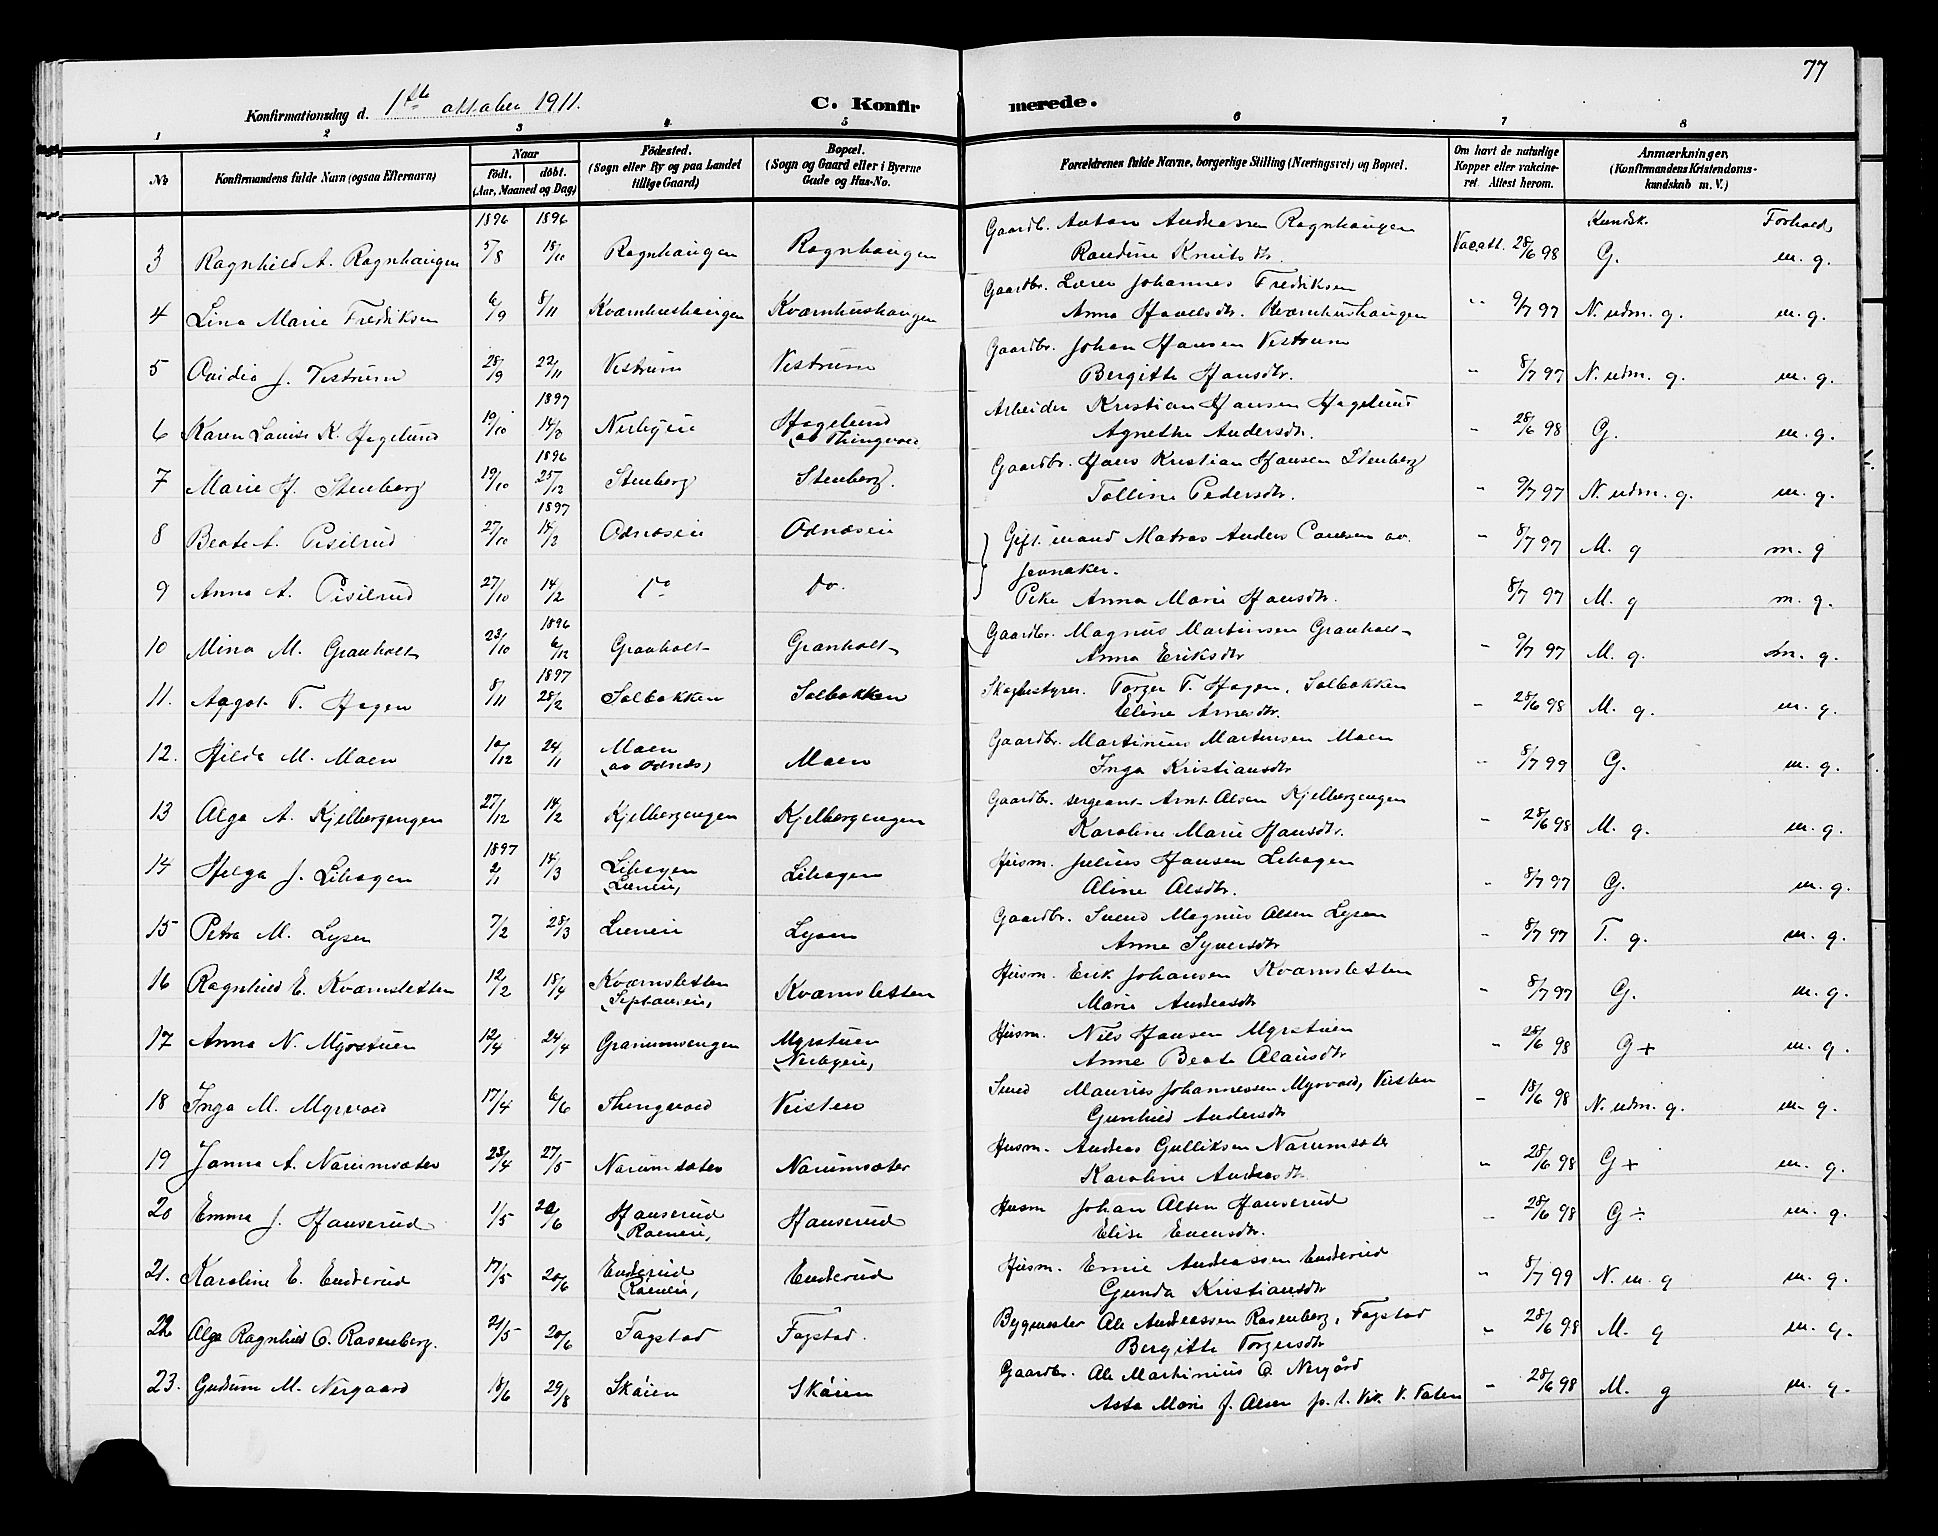 77
Konfirmationsdag d. 1ste oktober 1911. C. Konfirmerede.
1 2 3 4 5 6 7 8
No Konfirmandens fulde Navn (ogsaa Efternavn) Naar født. døbt. (Aar, Maaned og Dag) Fødested. (Sogn eller By og paa Landet tillige Gaard) Bopæl. (Sogn og Gaard eller i Byerne Gade og Hus-No. Forældrenes fulde Navne, borgerlige Stilling (Næringsvei) og Bopæl. Om havt de naturlige Kopper eller vakcineret. Attest herom. Anmærkninger. (Konfirmandens Kristendomskundskab m. V.)
1896 1896 Kundsk. Forhold
3 Ragnhild A. Ragnhaugen 5/8 18/10 Ragnhaugen Ragnhaugen Gaardb. Anton Andreassen Ragnhaugen Vac.att. 28/6 98 G. m. g.
Randine Knutsdtr.
4 Lina Marie Fredriksen 6/9 8/11 Kværnhushaugen Kværnhushaugen Gaardbr. Lærer Johannes Fredriksen " 9/7 97 N. udm. g. m. g.
Anna Havelsdtr. Kværnhushaugen
5 Ovidia J. Vestrum 28/9 22/11 Vestrum Vestrum Gaardbr. Johan Hansen Vestrum " 8/7 97 N. udm. g. m. g.
Bergitte Hansdtr.
1897
6 Karen Louise K. Hagelund 10/10 14/3 Nerbyeie Hagelund av Thingvold Arbeider Kristian Hansen Hagelund " 28/6 98 G. m. g.
Agnethe Andersdtr.
1896
7 Marie H. Stenberg 19/10 25/12 Stenberg Stenberg. Gaardbr. Hans Kristian Hansen Stenberg " 9/7 97 N. udm. g. m. g.
Talline Pedersdtr.
1897
8 Beate A. Pisilrud 27/10 14/2 Odnæseie Odnæseie Gift mand Matros Anders Paulsen av " 8/7 97 M. g m. g
Jevnaker.
9 Anna A. Pisilrud 27/10 14/2 do do. Pike Anna Marie Hansdtr. 8/7 97 M. g m. g.
1896
10 Mina M. Granholt 23/10 6/12 Granholt Granholt Gaardbr. Magnus Martinsen Granholt " 9/7 97 M. g. m. g.
Anna Eriksdtr
1897
11. Aagot T. Hagen 8/11 28/2 Solbakken Solbakken Skogbestyrer. Torger T. Hagen, Solbakken " 28/6 98 M. g. m. g.
Eline Arnesdtr.
12. Hilda M. Moen 10/12 24/11 Moen (av Odnæs) Moen Gaardbr. Martinius Martinsen Moen " 8/7 99 G. m. g.
Inga Kristiansdtr
13 Olga A. Kjelbergengen 27/12 14/2 Kjelbergengen Kjelbergengen Gaardbr. sergeant Arnt Olsen Kjelbergengen " 28/6 98 M. g. m. g.
Karoline Marie Hansdtr.
1897
14 Helga J. Lihagen 2/1 14/3 Lihagen Lihagen Husm. Julius Hansen Lihagen " 8/7 97 G. m. g.
Oline Olsdtr.
15 Petra M. Lysen 7/2 28/3 Lysen Gaardbr. Svend Magnus Olsen Lysen " 8/7 97 T. g. m. g.
Anne Syversdtr
16 Ragnhild E. Kværnsletten 12/2 18/4 Kværnsletten Kværnsletten Husm. Erik Johansen Kværnsletten " 8/7 97 G. m. g.
Marie Andreasdtr
17 Anna N. Myrstuen 12/4 24/4 Granumsengen Myrstuen Nerbyeie, Husm. Nils Hansen Myrstuen " 28/6 98 G + m. g.
Anne Beate Olausdtr
18 Inga M. Myrvold 17/4 6/6 Thingvold Veisten Smed Maurits Johannessen Myrvold, Veisten " 18/6 98 N. udm. g. m. g.
Gunhild Andersdtr
19 Janna A. Narumsæter 23/4 27/5 Narumsæter Narumsæter Husm. Andreas Gulliksen Narumsæter " 28/6 98 G + m. g.
Karoline Andreasdtr.
20 Emma J. Hanserud 1/5 20/6 Hanserud Hanserud Husm Johan Olsen Hanserud " 28/6 98 G ÷ m. g.
Elise Evensdtr.
21. Karoline E. Enderud 17/5 20/6 Enderud Enderud Husm. Andreassen Enderud " 8/7 99 N. m. g m. g.
Gunda Kristiansdtr
22 Olga Ragnhild O. Rosenberg. 21/5 20/6 Fagstad Fagstad. Bygmester Ole Andreassen Rosenberg, Fagstad " 28/6 98 M. g m. g.
Bergitte Torgersdtr
23. Gudrun M. Nergaard 18/6 29/8 Skøien Skøien Gaardbr. Ole Martinius O. Nergård " 28/6 98 M. g m. g.
Asta Marie J. Olsen p. t. Vik V. Toten